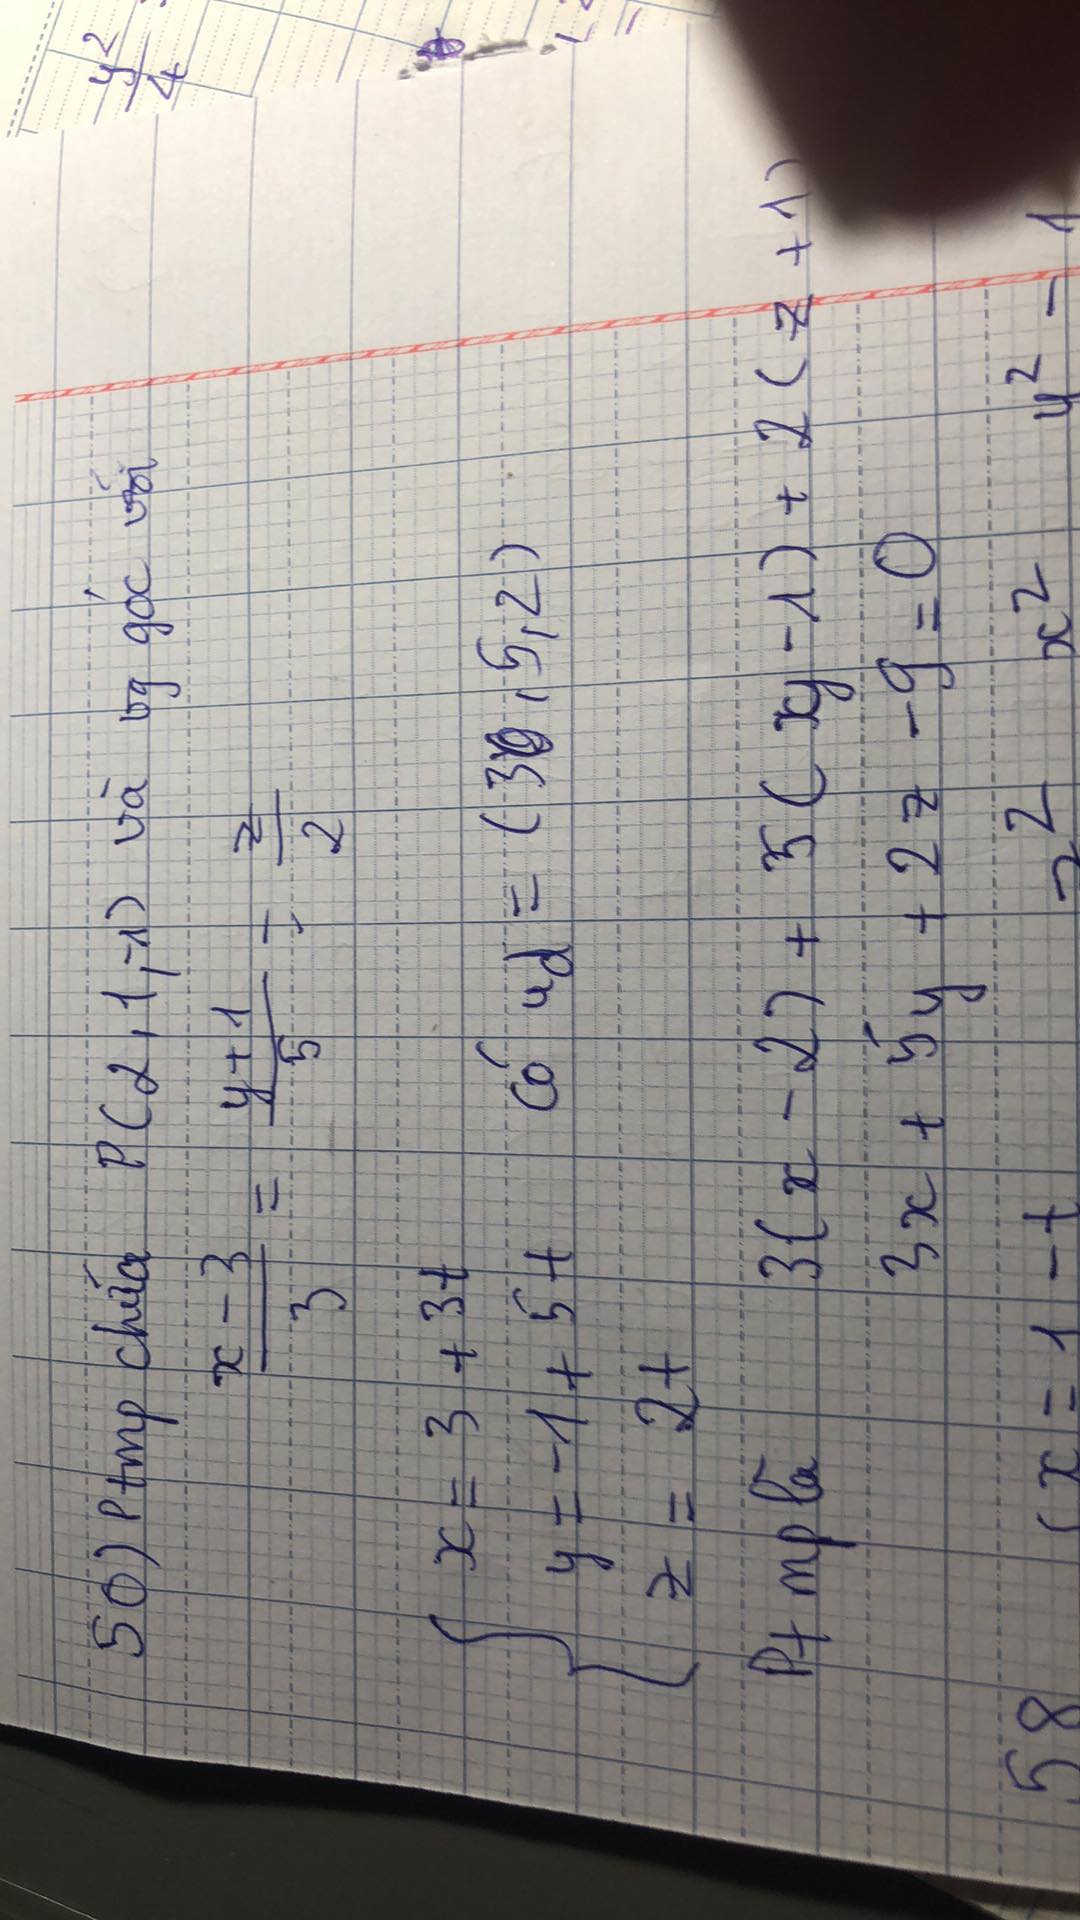 y²/4
50) Ptmp chứa P(2,1,-1) và vg góc với
x-3/3 = y+1/5 = z/2
x = 3 + 3t
y = -1 + 5t Có ud = (3,5,2)
z = 2t
Pt mp là 3(x-2) + 5(y-1) + 2(z+1)
3x + 5y + 2z - 9 = 0
58 (x = 1 - t 2 x² y² - 1